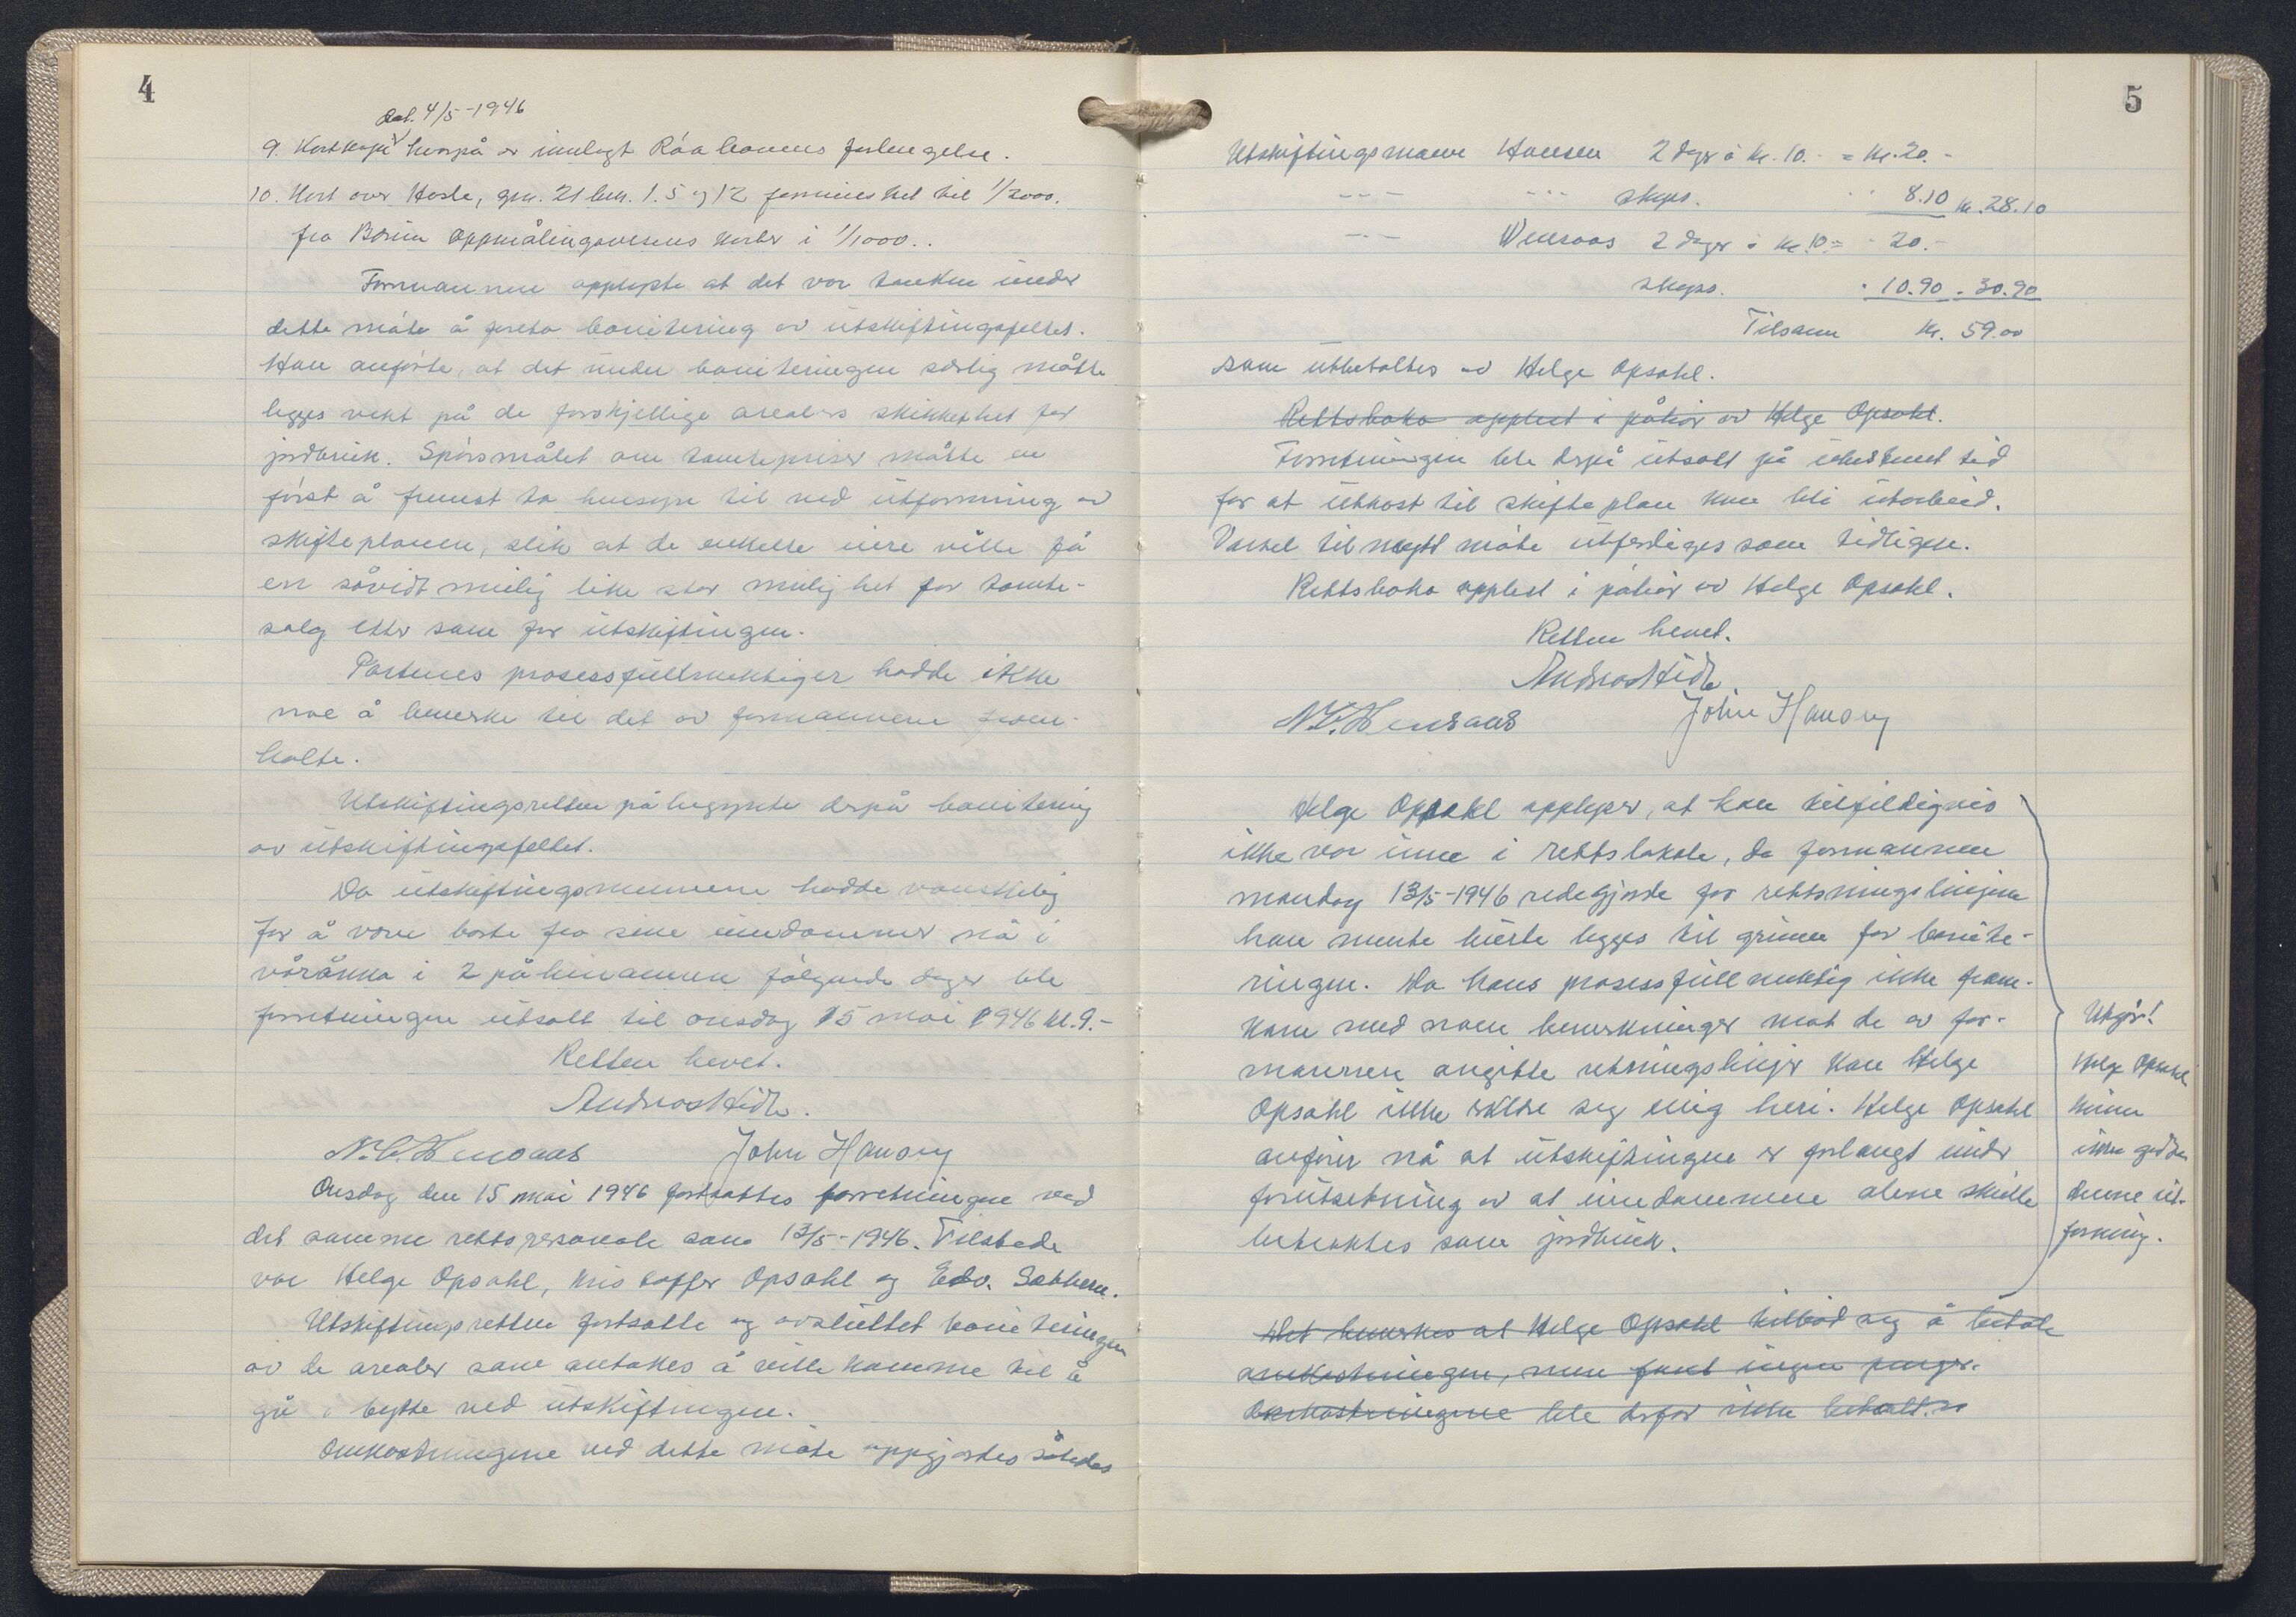 4
dat. 4/5-1946
9. Kartkopi hvorpå er innlagt Råabanens forlengelse.
10. Kart over Hosle, gnr. 21 bnr. 1. 5 og 12 forminsket til 1/2000.
fra Bærum Oppmålingsvesens karter i 1/1000..
Formannen opplyste at det var tanken under
dette møte å foreta bonitering av utskiftingsfeltet.
Han anførte, at det under boniteringen særlig måtte
legges vekt på de forskjellige arealers skikkethet for
jordbruk. Spørsmålet om tomtepriser måtte en
først å fremst ta hensyn til ved utforming av
skifteplanen, slik at de enkelte eiere ville få
en såvidt mulig like stor mulighet for tomte-
salg etter som før utskiftingen.
Partenes prosessfullmektiger hadde ikke
noe å bemerke til det av formannen frem-
holte.
Utskiftingsretten påbegynte derpå bonitering
av utskiftingsfeltet.
Da utskiftingsmennene hadde vanskelig
for å være borte fra sine eiendommer nå i
våronna i 2 på hinannen følgende dager ble
forretningen utsatt til onsdag 15 mai 1946 kl. 9.-
Retten hevet.
John Hansen
Onsdag den 15 mai 1946 fortsattes forretningen ved
det samme rettspersonale som 13/5-1946. Tilstede
var Helge Opsahl, Kristoffer Opsahl og Edv.
Utskiftingsretten fortsatte og avsluttet boniteringen
av de arealer som antakes å ville komme til å
gå i bytte ved utskiftingen.
Omkostningene ved dette møte oppgjordes således
5
Utskiftingsmann Hansen 2 dager à kr. 10.- = kr. 20.-
--- --- skyss. 8.10 kr. 28.10
--- Wensaas 2 dager à kr. 10 = - 20.-
skyss. - 10.90 - 30.90
Tilsamm kr. 59.00
som utbetaltes av Helge Opsahl.
Rettsboka opplest i påhør av Helge Opsahl.
Forretningen ble derpå utsatt på ubestemt tid
for at utkast til skifteplan kan bli utarbeid.
Varsel til nytt møte utferdiges som tidligere.
Rettsboka opplest i påhør av Helge Opsahl.
Retten hevet.
N. C. Wensaas John Hansen
Helge Opsahl opplyser, at han tilfeldigvis
ikke var inne i rettslokale, da formannen
mandag 13/5-1946 redegjorde for retningslinjene
han mente burte legges til grunn for bonite-
ringen. Da hans prosessfullmektig ikke frem-
kom med noen bemerkninger mot de av for-
mannen angitte retningslinjer kan Helge
Opsahl ikke erklære seg enig heri. Helge Opsahl
anfører nå at utskiftingen er forlangt under
forutsetning av at eiendommene alene skulle
betraktes som jordbruk.
Utgår!
Helge Opsahl
kunne
ikke godta
denne ut-
forming.
Det bemerkes at Helge Opsahl tilbød seg å betale
omkostningene, men fant ingen penger.
Omkostningene ble derfor ikke betalt.